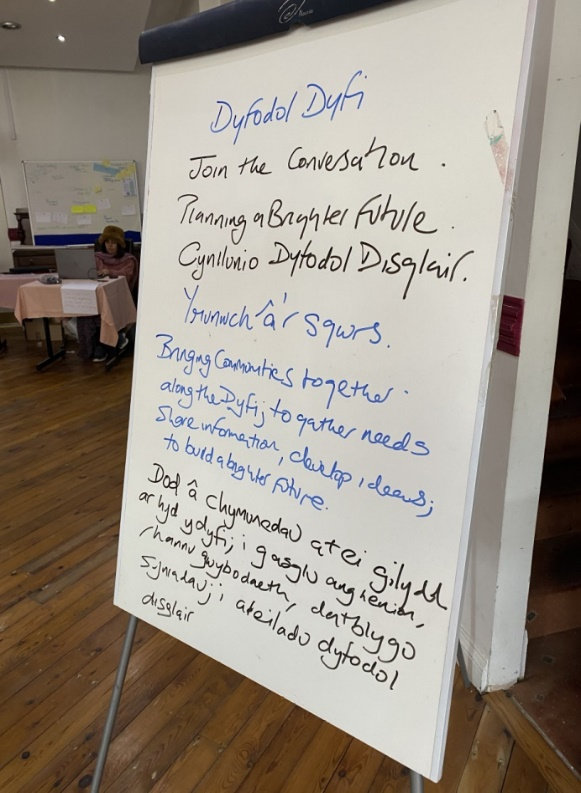 Dyfodol Dyfi
Join the Conversation.
Planning a Brighter Future.
Cynllunio Dyfodol Disglair.
Ymunwch â'r sgwrs.
Bringing Communities together
along the Dyfi; to gather needs
Share information, develop ideas;
to build a brighter future.
Dod â chymunedau at ei gilydd
ar hyd y dyfi; i gasglu anghenion,
rhannu gwybodaeth, datblygu
syniadau; i ateiladu dyfodol
disglair